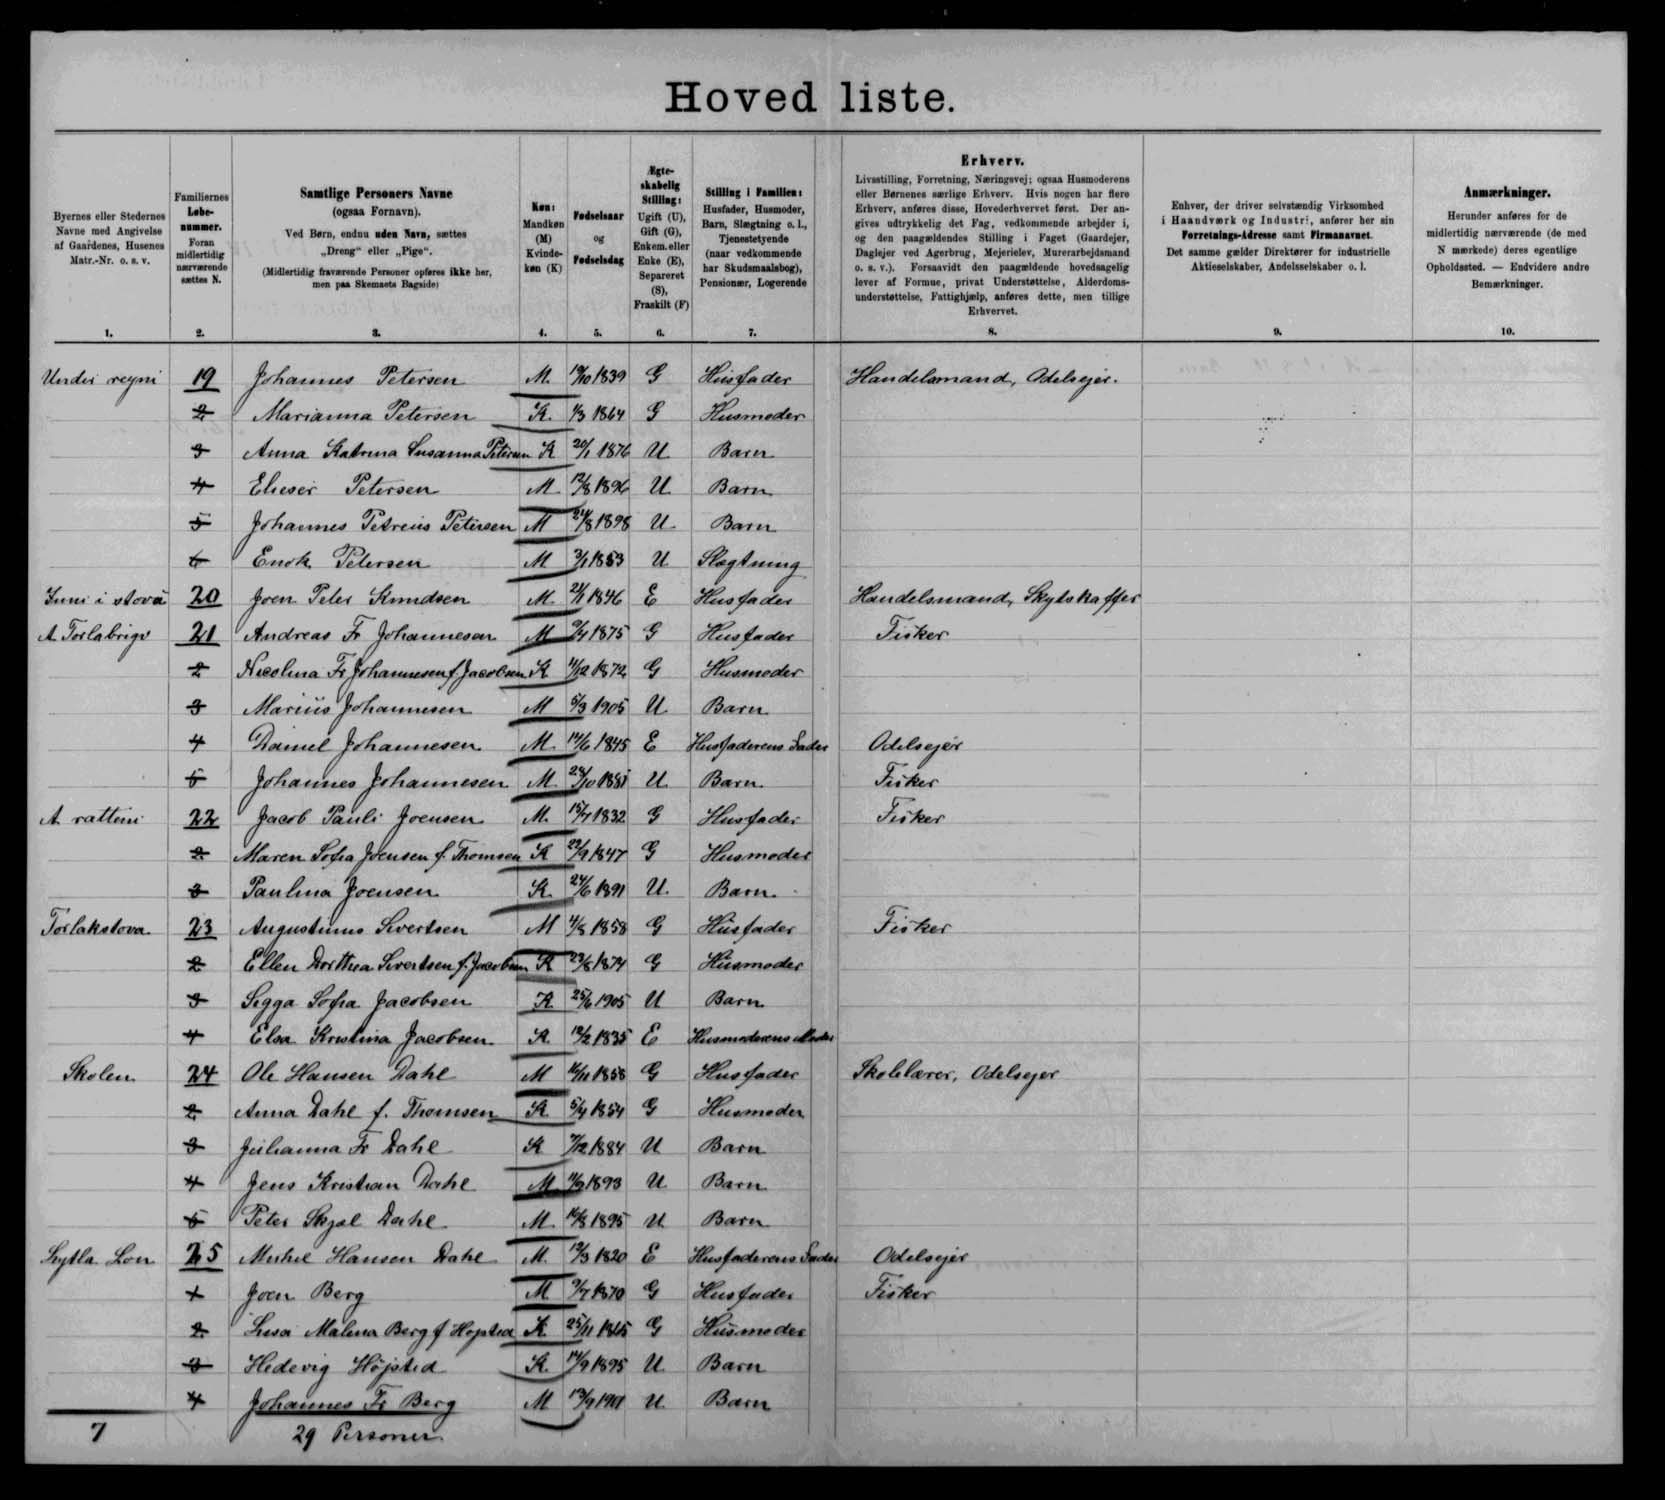 Hoved liste.
Byernes eller Stedernes Navne med Angivelse af Gaardenes, Husenes Matr.-Nr. o. s. v.
Familiernes Løbe-nummer. Foran midlertidig nærværende sættes N.
Samtlige Personers Navne (ogsaa Fornavn). Ved Børn, endnu uden Navn, sættes „Dreng“ eller „Pige“. (Midlertidig fraværende Personer opføres ikke her, men paa Skemaets Bagside)
Køn: Mandkøn (M) Kvinde-køn (K)
Fødselsaar og Fødselsdag
Ægte-skabelig Stilling: Ugift (U), Gift (G), Enkem. eller Enke (E), Separeret (S), Fraskilt (F)
Stilling i Familien: Husfader, Husmoder, Barn, Slægtning o. l., Tjenestetyende (naar vedkommende har Skudsmaalsbog), Pensionær, Logerende
Erhverv. Livsstilling, Forretning, Næringsvej; ogsaa Husmoderens eller Børnenes særlige Erhverv. Hvis nogen har flere Erhverv, anføres disse, Hovederhvervet først. Der angives udtrykkelig det Fag, vedkommende arbejder i, og den paagældendes Stilling i Faget (Gaardejer, Daglejer ved Agerbrug, Mejerielev, Murerarbejdsmand o. s. v.). Forsaavidt den paagældende hovedsagelig lever af Formue, privat Understøttelse, Alderdoms-understøttelse, Fattighjælp, anføres dette, men tillige Erhvervet.
Enhver, der driver selvstændig Virksomhed i Haandværk og Industri, anfører her sin Forretnings-Adresse samt Firmanavnet. Det samme gælder Direktører for industrielle Aktieselskaber, Andelsselskaber o. l.
Anmærkninger. Herunder anføres for de midlertidig nærværende (de med N mærkede) deres egentlige Opholdssted. — Endvidere andre Bemærkninger.
1. 2. 3. 4. 5. 6. 7. 8. 9. 10.
Undir reyni 19 Johannes Petersen M. 19/10 1839 G Husfader Handelsmand, Odelsejer.
2 Marianna Petersen K. 1/3 1864 G Husmoder
3 Anna Katrina Susanna Petersen K 20/1 1876 U Barn
4 Elieser Petersen M. 12/8 1896 U Barn
5 Johannes Petreus Petersen M 24/8 1898 U Barn
6 Enok Petersen M 3/1 1853 U Slægtning
Inni i stova 20 Joen Peter Knudsen M. 21/1 1846 E Husfader Handelsmand, Skytskaffer
A Torlabrigv 21 Andreas Fr Johannesen M 1875 G Husfader Fisker
2 Nicolina Fr Johannesen f. Jacobsen K 11/12 1872 G Husmoder
3 Mariüs Johannesen M 5/3 1905 U Barn
4 Daniel Johannesen M. 14/6 1845 E Husfaderens Fader Odelsejer
5 Johannes Johannesen M. 28/10 1881 U Barn Fisker
A rattini 22 Jacob Pauli Joensen M. 15/7 1832 G Husfader Fisker
2 Maren Sofia Joensen f. Thomsen K 22/9 1847 G Husmoder
3 Paulina Joensen K. 24/6 1891 U. Barn
Torlakstova 23 Augustinus Sivertsen M 4/8 1858 G Husfader Fisker
2 Ellen Dorthea Sivertsen f. Jacobsen K 29/8 1874 G Husmoder
3 Sigga Sofia Jacobsen K 25/6 1905 U Barn
4 Elsa Kristina Jacobsen K. 12/2 1835 E Husmoderens Moder
Skolen 24 Ole Hansen Dahl M 16/11 1858 G Husfader Skolelærer, Odelsejer
2 Anna Dahl f. Thomsen K 5/4 1854 G Husmoder
3 Julianna Fr Dahl K 7/12 1884 U Barn
4 Jens Kristian Dahl M 11/9 1893 U Barn
5 Peter Skjal Dahl M. 16/8 1895 U. Barn
Lon 25 Mickel Hansen Dahl M. 12/3 1820 E Husfaderens Fader Odelsejer
1 Joen Berg M 9/7 1870 G Husfader Fisker
2 Susa Malena Berg f Højsted K 25/11 1865 G Husmoder
3 Hedevig Højsted K. 14/9 1895 U Barn
4 Johannes Fr Berg M 13/9 1901 U Barn
7 29 Personer.